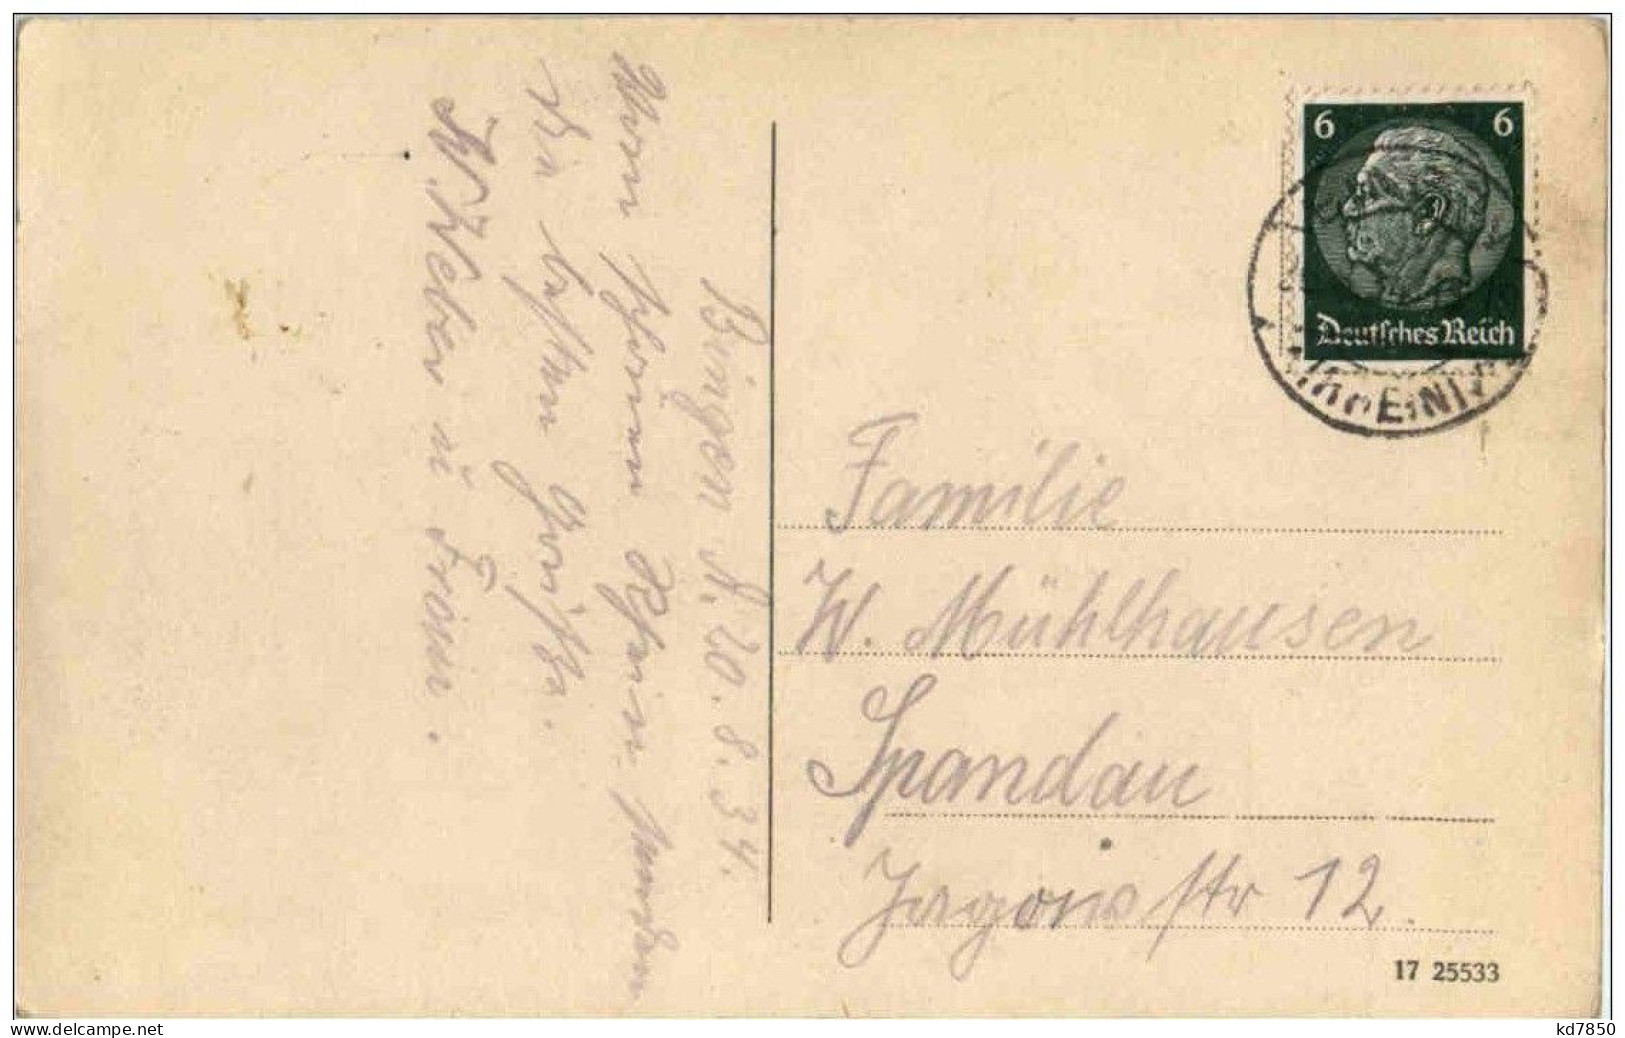 Bingen d. 20.8.34.
Vom schönen Rhein senden
die besten Grüße.
W. Weber u Frau.
6 6
Deutsches Reich
Familie
W. Mühlhausen
Spandau
Jagowstr 12.
17 25533
www.delcampe.net
kd7850